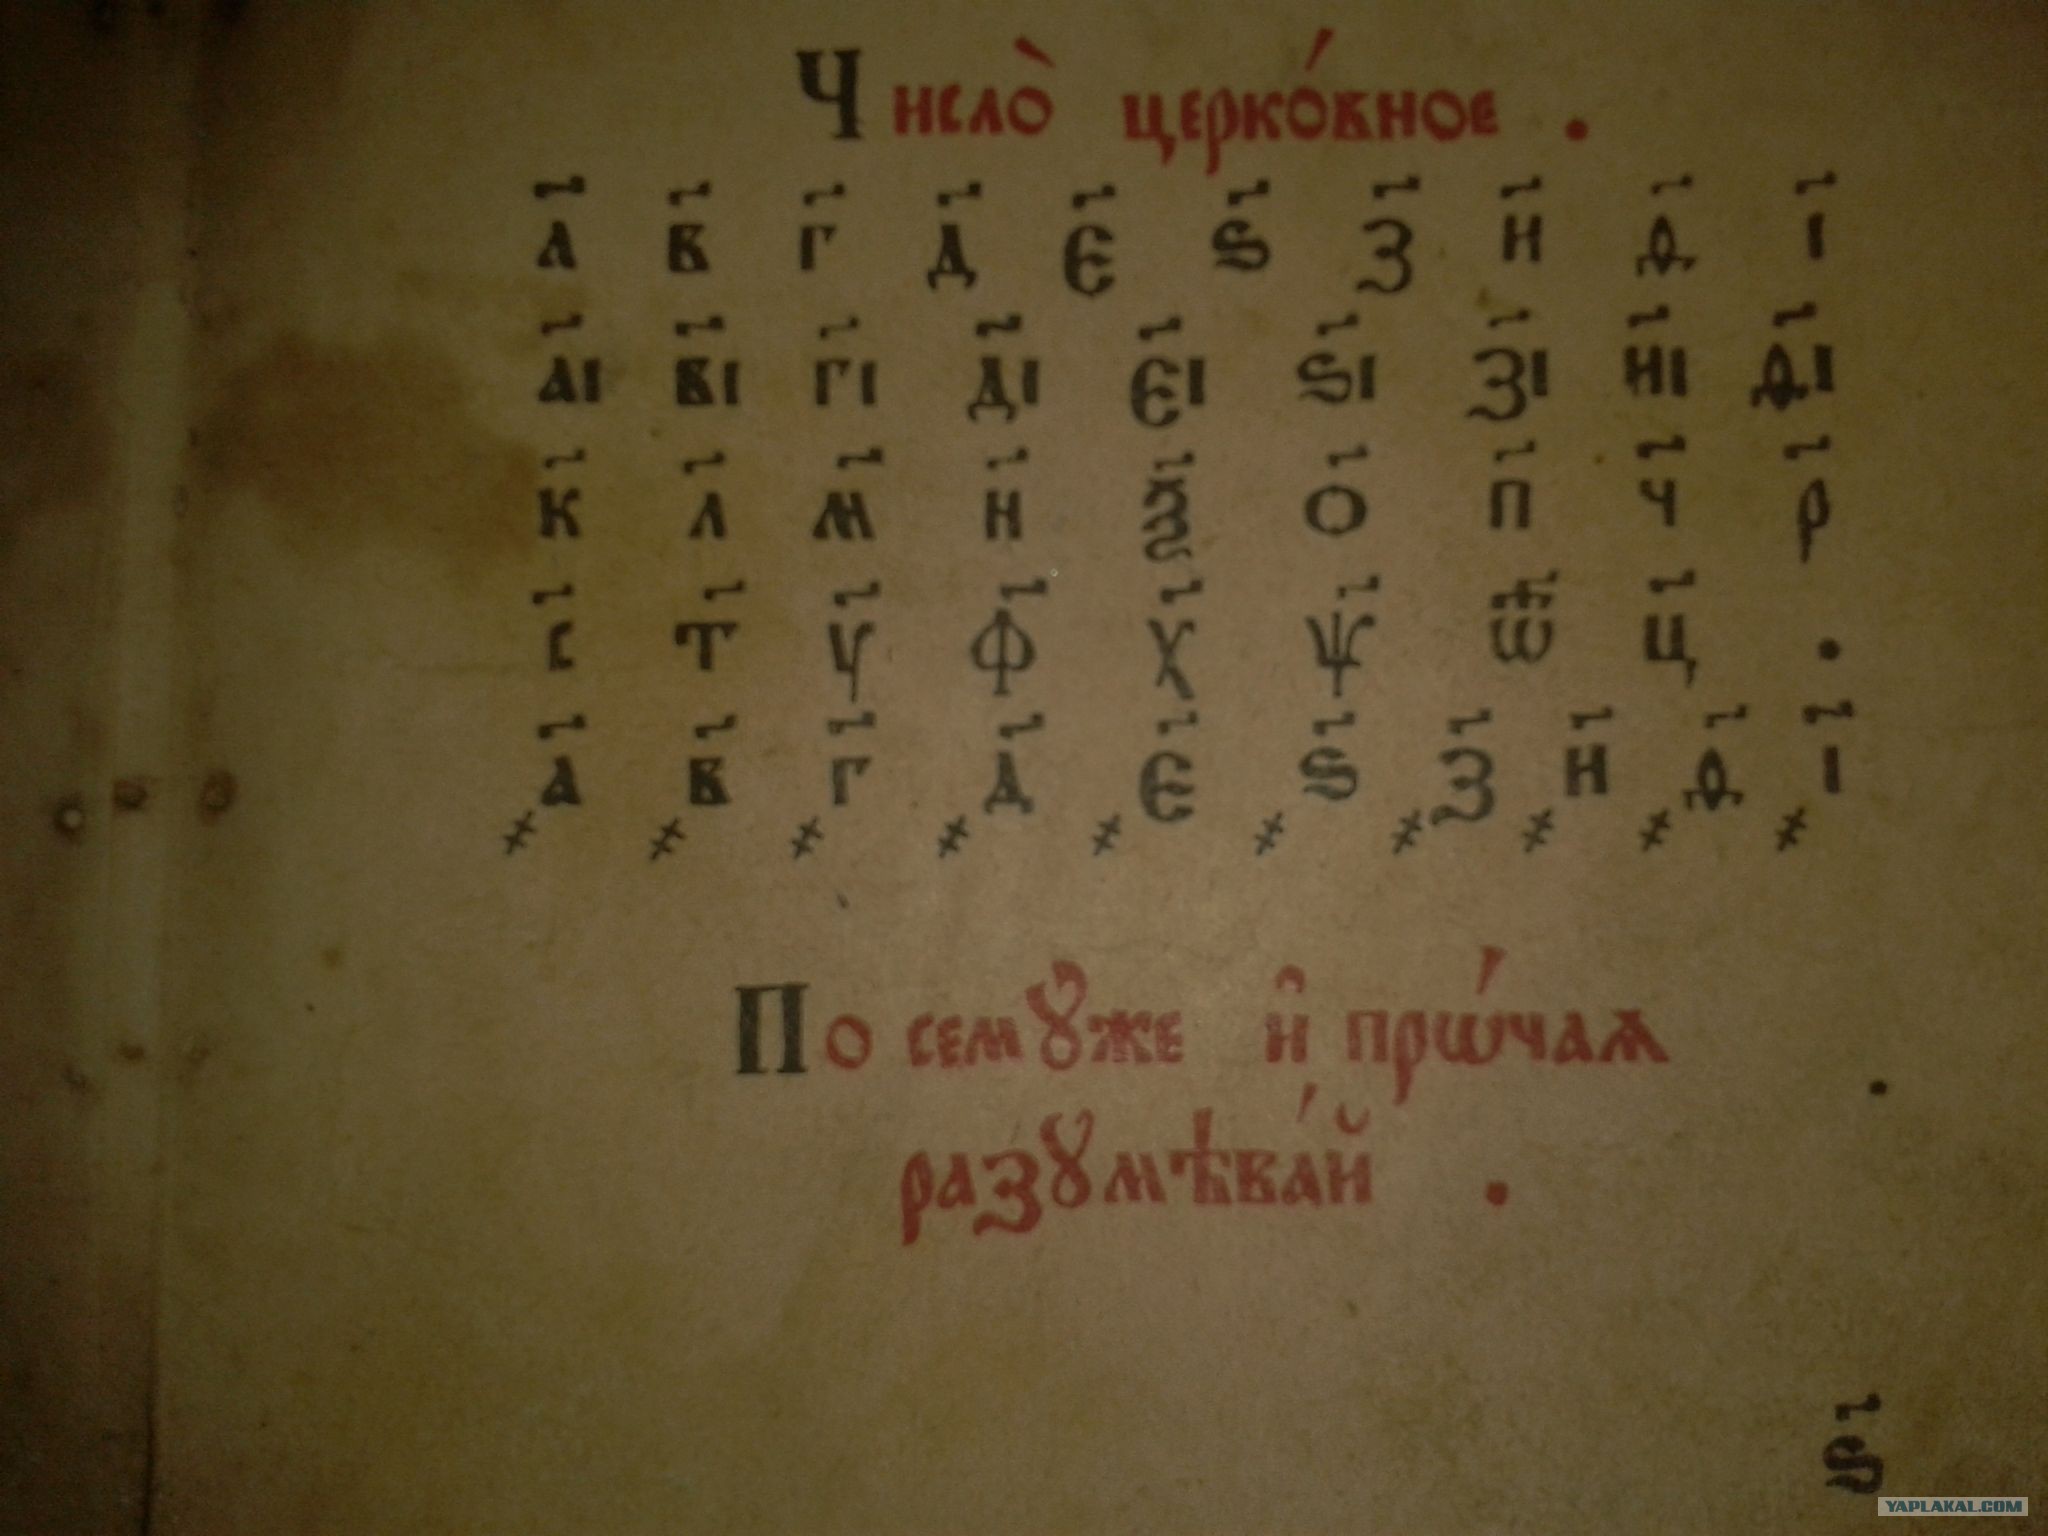 Число̀ церко́вное .
а҃ в҃ г҃ д҃ є҃ ѕ҃ з҃ и҃ ѳ҃ і҃
а҃і в҃і г҃і д҃і є҃і ѕ҃і з҃і и҃і ѳ҃і
к҃ л҃ м҃ н҃ ѯ҃ о҃ п҃ ч҃ р҃
с҃ т҃ у҃ ф҃ х҃ ѱ҃ ѿ҃ ц҃ .
҂а҃ ҂в҃ ҂г҃ ҂д҃ ҂є҃ ҂ѕ҃ ҂з҃ ҂и҃ ҂ѳ҃ ҂і҃
По семꙋже и҆ прѡ́чаѧ
разꙋмѣва́й .
ѕ҃
YAPLAKAL.COM